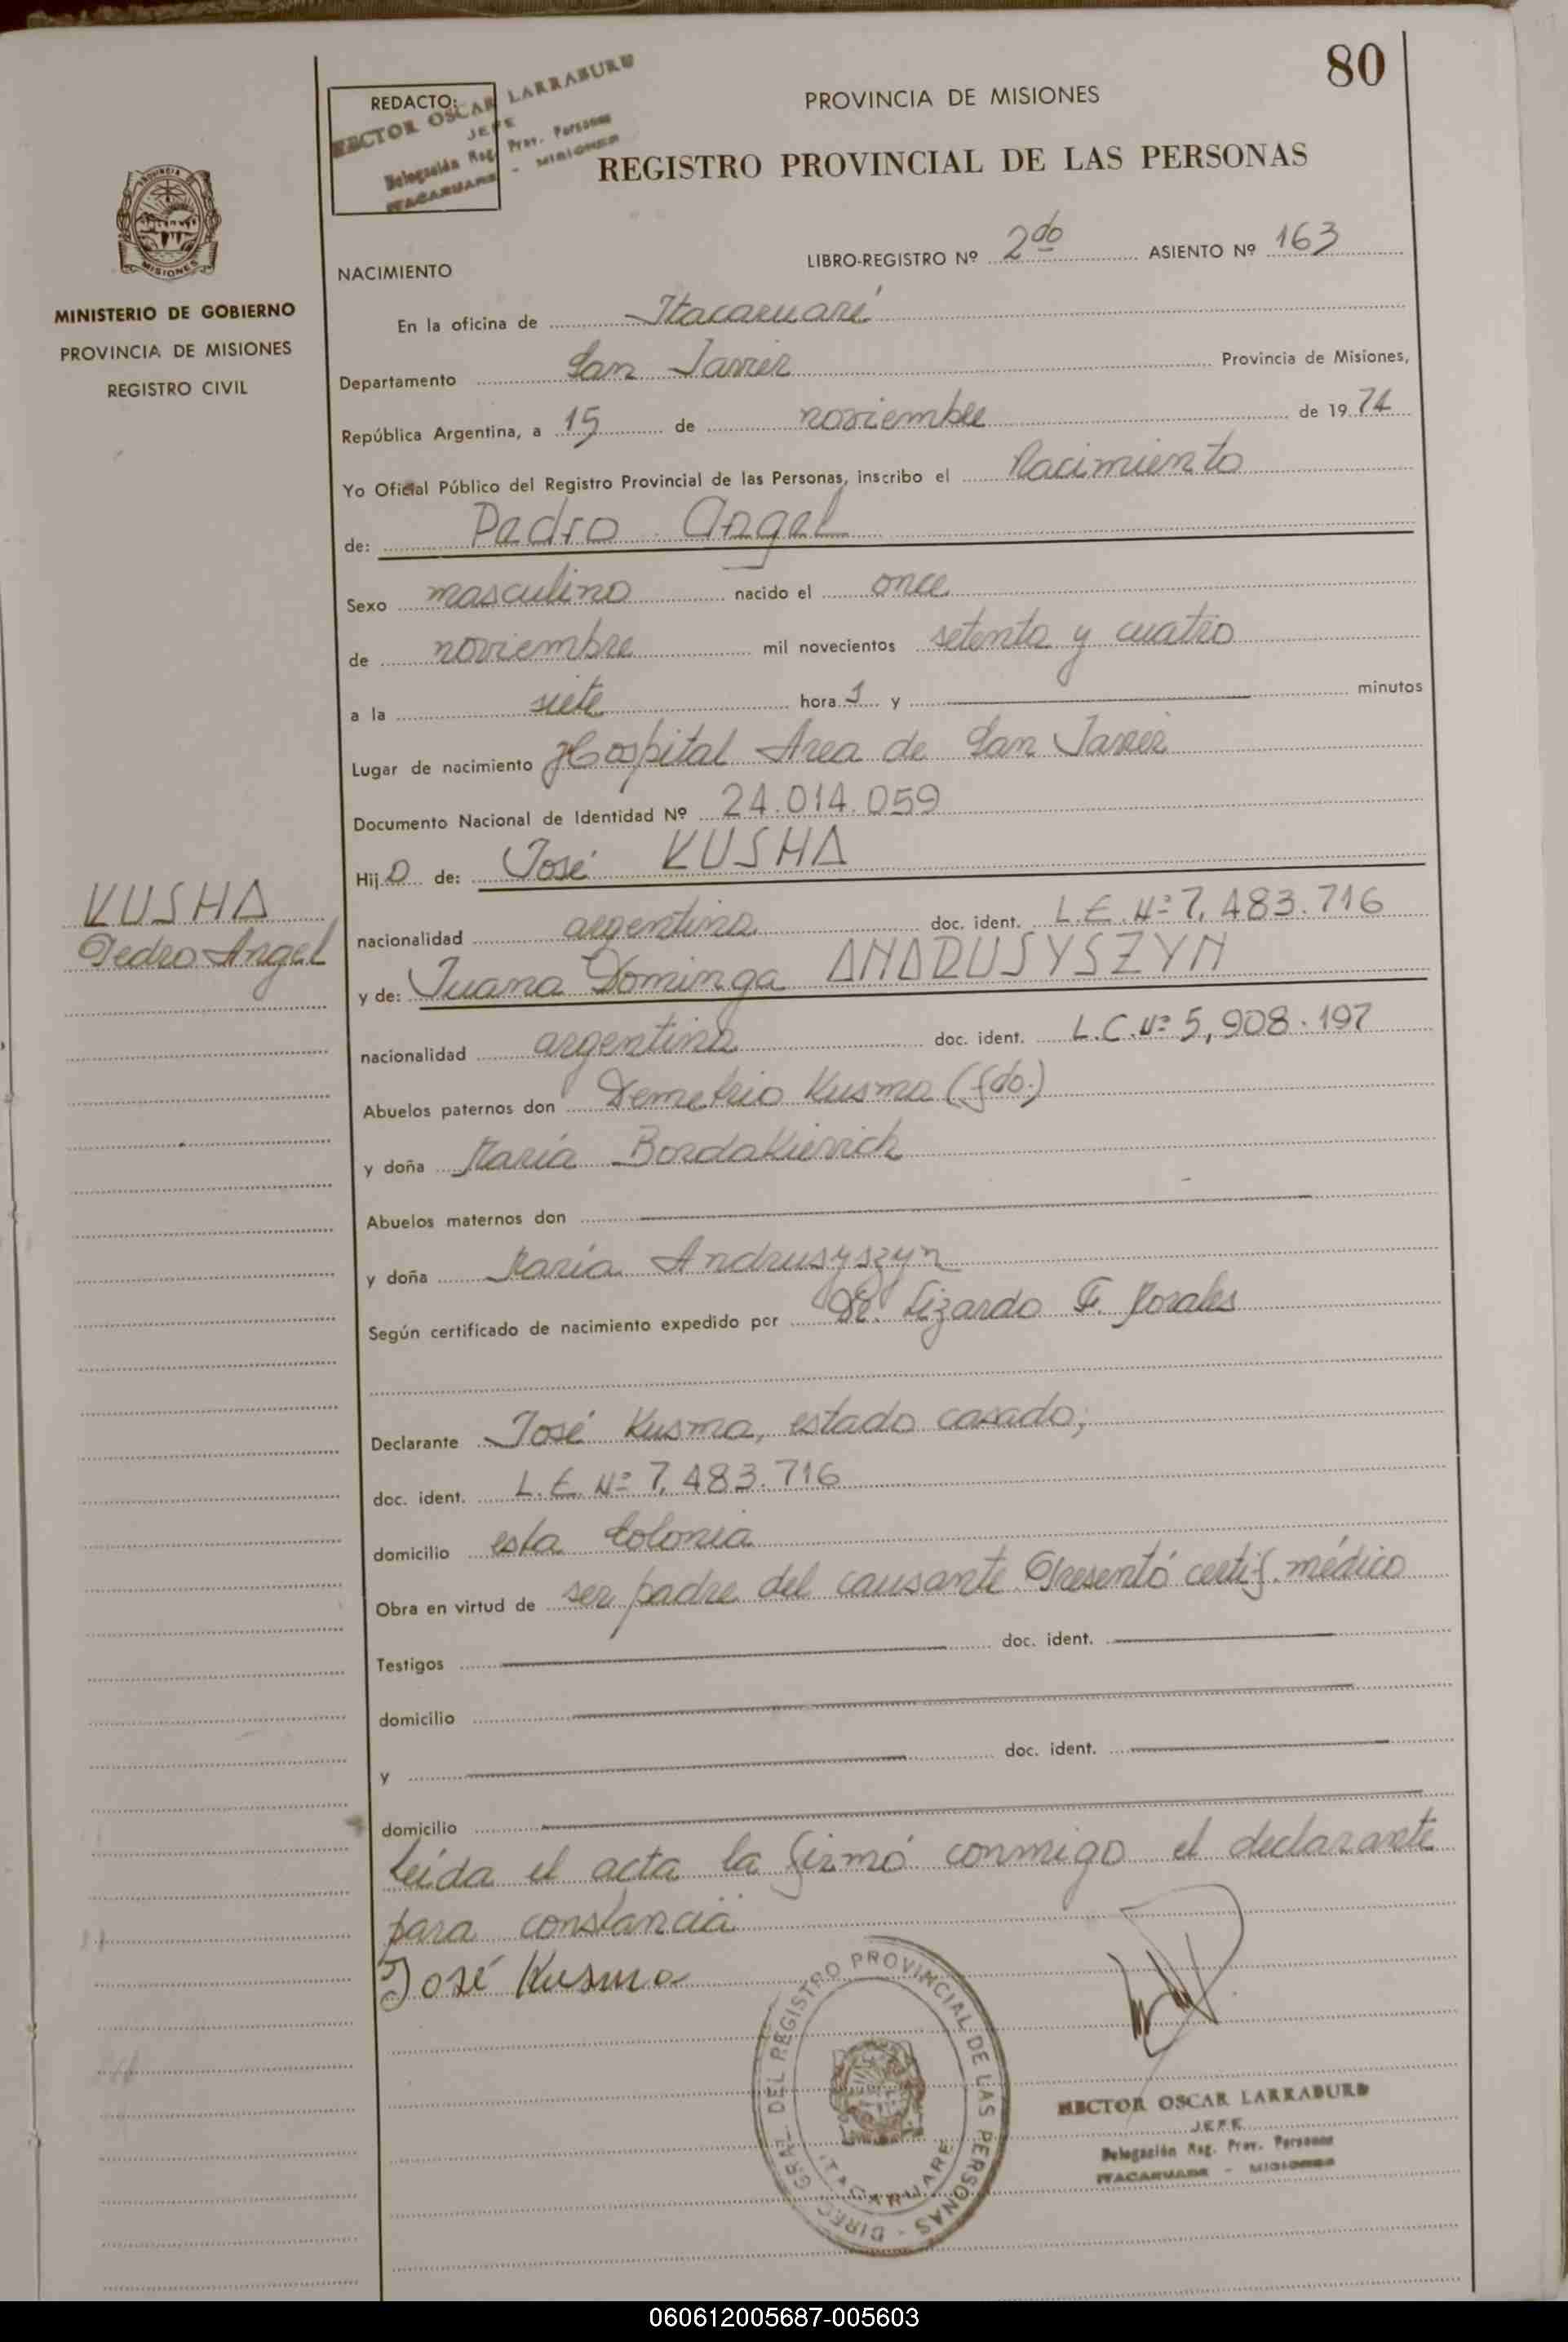 80
REDACTO:
HECTOR OSCAR LARRABURU
JEFE
Delegación Reg. Prov. Personas
ITACARUARE - MISIONES
PROVINCIA DE MISIONES
REGISTRO PROVINCIAL DE LAS PERSONAS
MISIONES
MINISTERIO DE GOBIERNO
PROVINCIA DE MISIONES
REGISTRO CIVIL
NACIMIENTO
LIBRO-REGISTRO Nº 2do ASIENTO Nº 163
En la oficina de Itacaruaré
Departamento San Javier Provincia de Misiones,
República Argentina, a 15 de noviembre de 1974
Yo Oficial Público del Registro Provincial de las Personas, inscribo el Nacimiento
de: Pedro Angel
Sexo masculino nacido el once
de noviembre mil novecientos setenta y cuatro
a la siete hora s y minutos
Lugar de nacimiento Hospital Area de San Javier
Documento Nacional de Identidad Nº 24.014.059
Hijo de: José KUSMA
nacionalidad argentina doc. ident. L.E. Nº 7.483.716
KUSMA
Pedro Angel
y de: Juana Dominga ANDRUSYSZYN
nacionalidad argentina doc. ident. L.C. Nº 5,908.197
Abuelos paternos don Demetrio Kusma (fdo.)
y doña María Bordakievich
Abuelos maternos don
y doña María Andrusyszyn
Según certificado de nacimiento expedido por Dr. Lizardo F. Rosales
Declarante José Kusma, estado casado,
doc. ident. L.E. Nº 7.483.716
domicilio esta Colonia
Obra en virtud de ser padre del causante. Presentó certif. médico
Testigos doc. ident.
domicilio
y doc. ident.
domicilio
Leída el acta la firmó conmigo el declarante
para constancia
José Kusma
DIREC. GRAL. DEL REGISTRO PROVINCIAL DE LAS PERSONAS - ITACARUARE
HECTOR OSCAR LARRABURU
JEFE
Delegación Reg. Prov. Personas
ITACARUARE - MISIONES
060612005687-005603